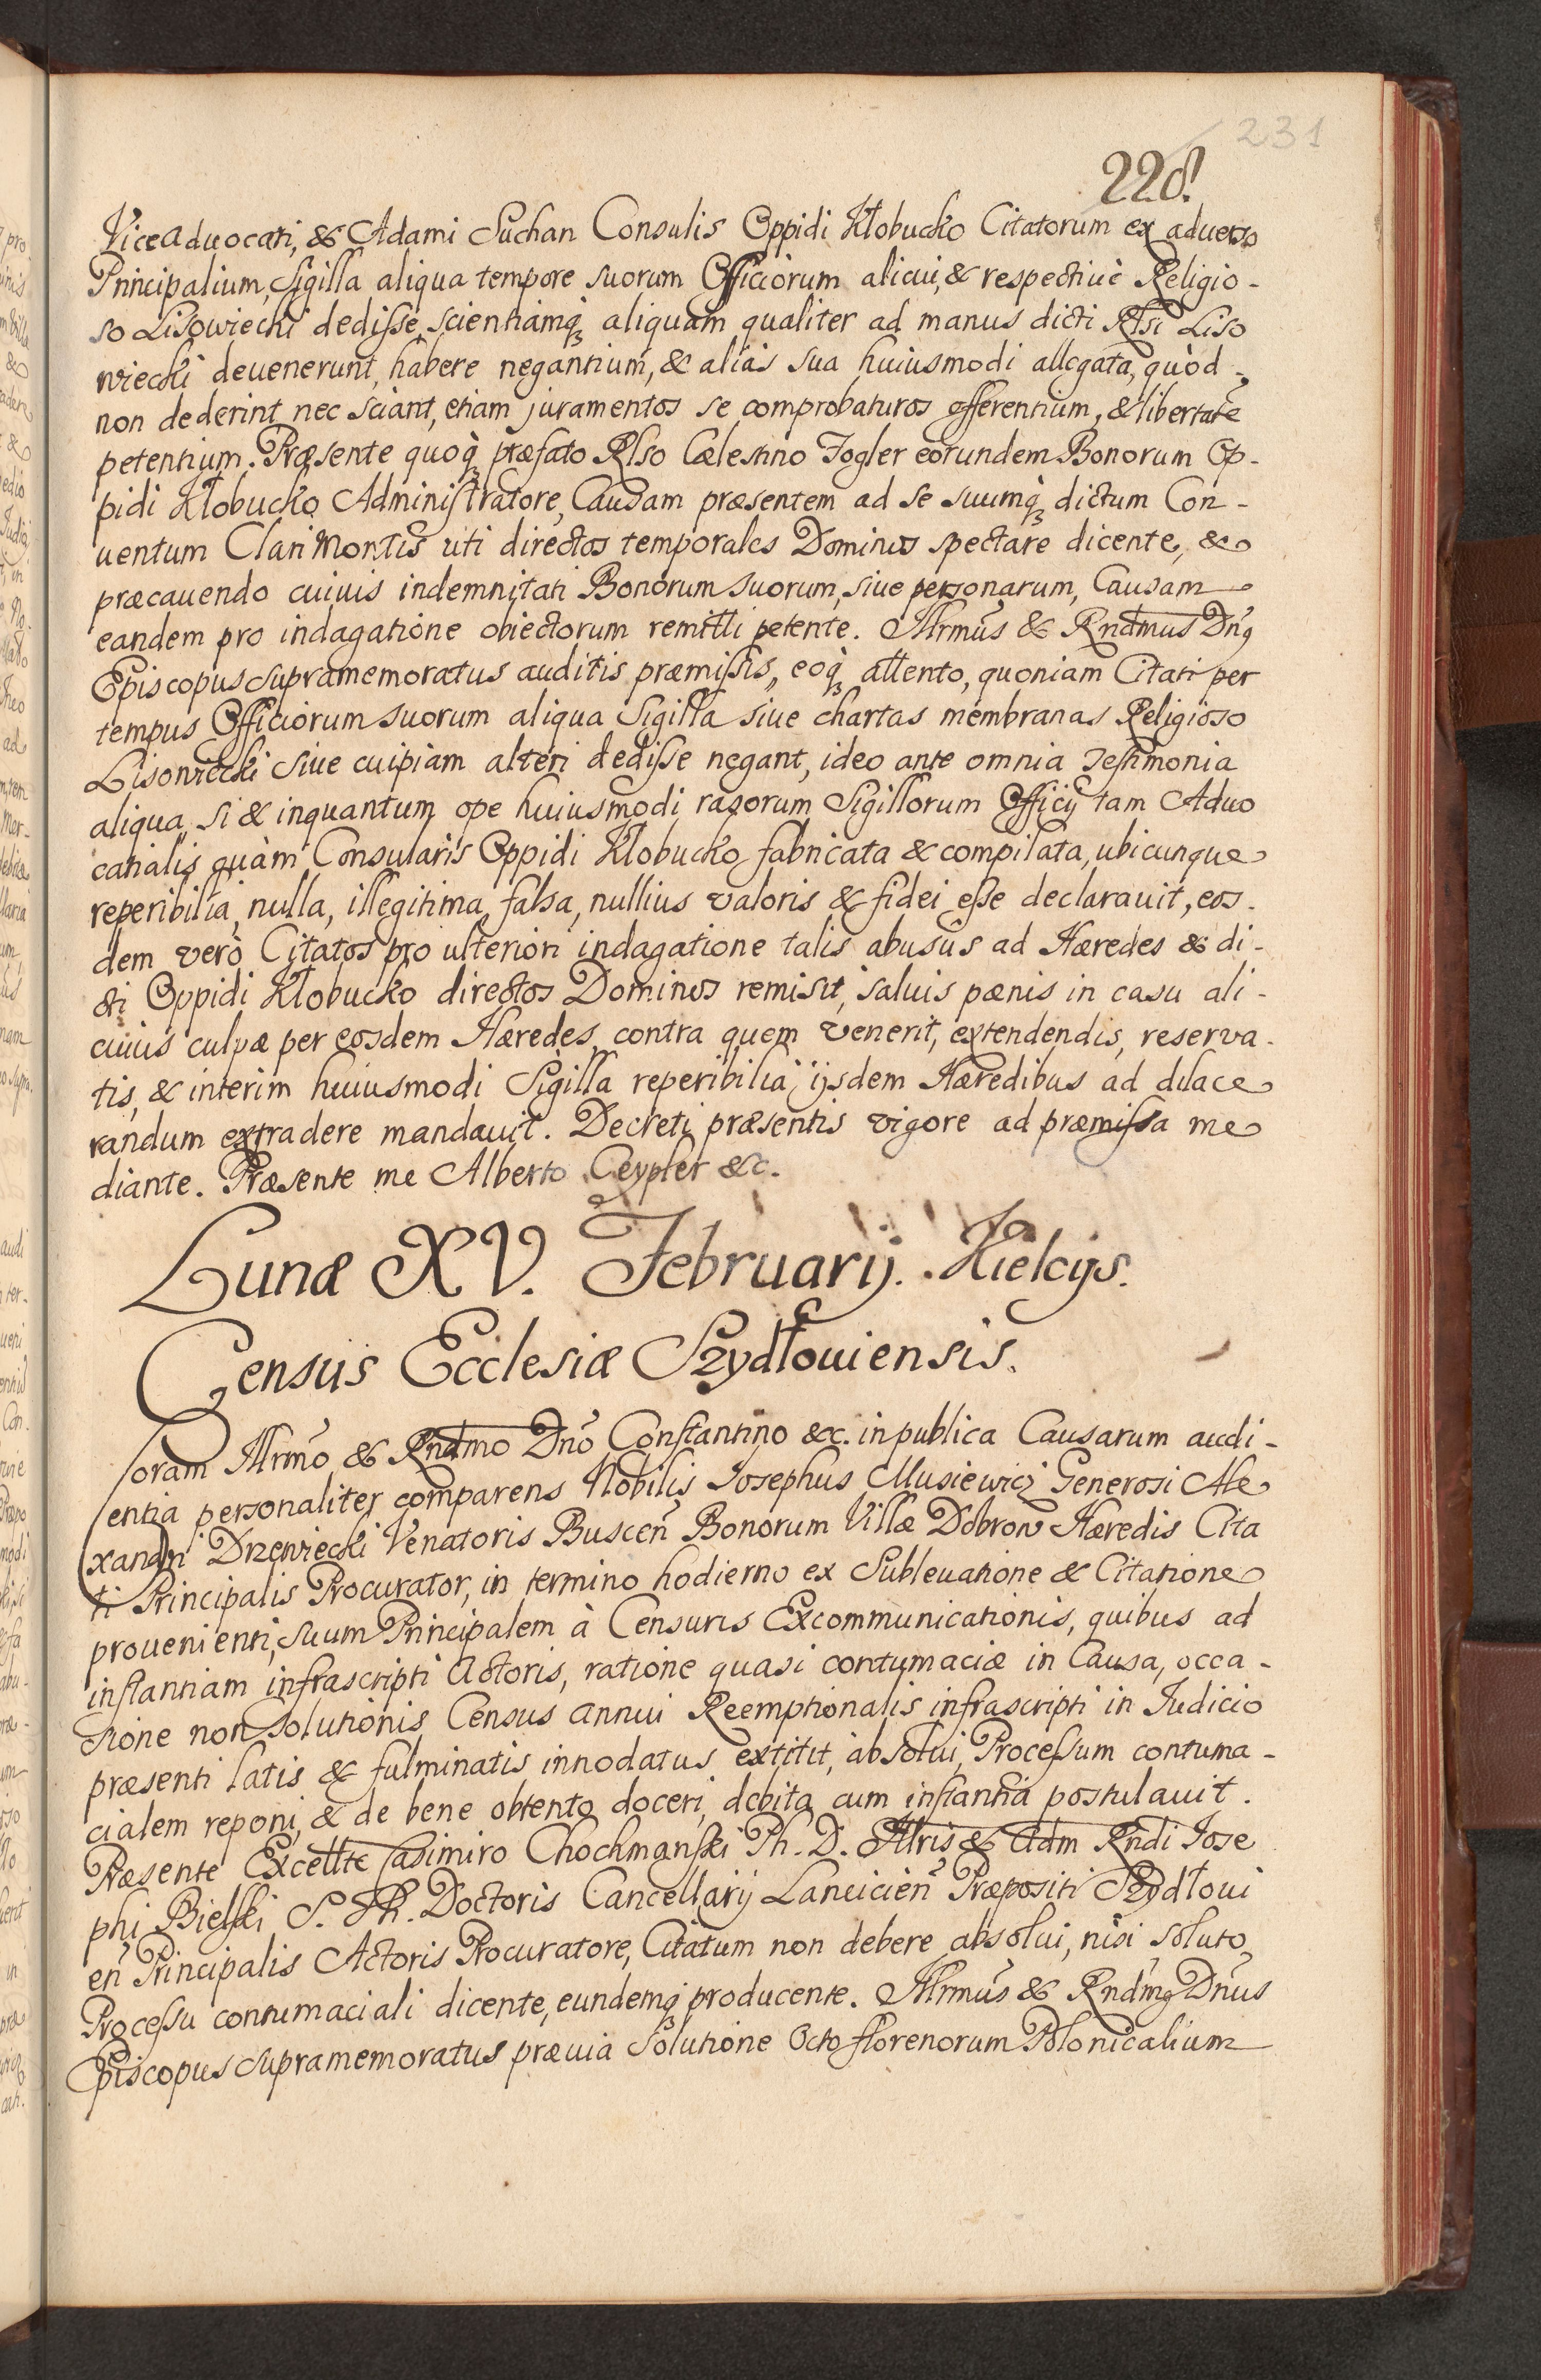 231
228.
Viceaduocati, & Adami Suchan Consulis Oppidi Kłobucko Citatorum ex aduerso
Principalium, Sigilla aliqua tempore suorum Officiorum alicui, & respectiuè Religio-
so Lisowiecki dedisse, scientiamq́ aliquam qualiter ad manus dicti Rlsi Liso
wiecki deuenerunt, habere negantium, & aliàs sua huiusmodi allegata, quòd
non dederint, nec sciant, etiam juramentos se comprobaturos offerentium, & libertate
petentium. Præsente quoq́ præfato Rlso Cælestino Fogler eorundem Bonorum Op-
pidi Kłobucko Administratore, Causam præsentem ad se suumq́ dictum Con-
uentum Clari Montis uti directos temporales Dominos spectare dicente, &
præcauendo cuiuis indemnitati Bonorum suorum, siue personarum, Causam
eandem pro indagatione obiectorum remitti petente. Illrmus & Rndmus Dng
Episcopus supramemoratus auditis præmissis, eoq́ attento, quoniam Citati per
tempus Officiorum suorum aliqua Sigilla siue chartas membranas Religioso
Lisowiecki siue cuipiam alteri dedisse negant, ideo ante omnia Testimonia
aliqua, si & inquantum ope huiusmodi rasorum Sigillorum Officij tam Aduo
catialis quàm Consularis Oppidi Kłobucko fabricata & compilata, ubicunque
reperibilia, nulla, illegitima, falsa, nullius valoris & fidei esse declarauit, eos-
dem verò Citatos pro ulteriori indagatione talis abusûs ad Hæredes & di-
cti Oppidi Kłobucko directos Dominos remisit, saluis pænis in casu ali-
cuius culpæ per eosdem Hæredes, contra quem venerit, extendendis, reserva-
tis, & interim huiusmodi Sigilla reperibilia ijsdem Hæredibus ad dilace
randum extradere mandauit. Decreti præsentis vigore ad præmissa me
diante. Præsente me Alberto Ceypler &c.
Lunæ XV. Februarij. Kielcijs.
Census Ecclesiæ Szydłouiensis.
Coram Illrmo & Rndmo Dno Constantino &c. in publica Causarum audi-
entia personaliter comparens Nobilis Iosephus Musiewicz Generosi Ale
xandri Drzewiecki Venatoris Buscen Bonorum Villæ Dobrow Hæredis Cita
ti Principalis Procurator, in termino hodierno ex Subleuatione & Citatione
prouenienti, suum Principalem à Censuris Excommunicationis, quibus ad
instantiam infrascripti Actoris, ratione quasi contumaciæ in Causa, occa-
sione non solutionis Census annui Reemptionalis infrascripti in Iudicio
præsenti latis & fulminatis innodatus extitit, absolui, Processum contuma-
cialem reponi, & de bene obtento doceri, debita cum instantia postulauit.
Præsente Excellte Casimiro Chochmanski Ph. D. Illris & Adm Rndi Iose
phi Bielski S. Th. Doctoris Cancellarij Lancicien Præpositi Szydłoui
en Principalis Actoris Procuratore, Citatum non debere absolui, nisi soluto
Processu contumaciali dicente, eundemq́ producente. Illrmus & Rndmg Dnus
Episcopus supramemoratus præuia solutione octo florenorum Polonicalium